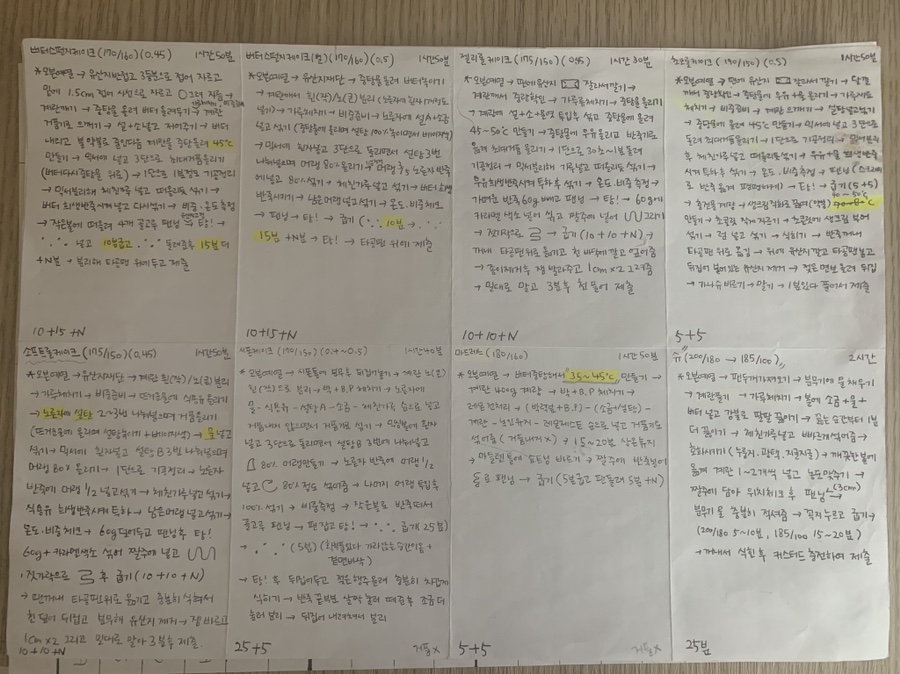 버터스펀지케이크 (170/160) (0.45) 1시간50분
*오븐예열 → 유산지반접고 3등분으로 접어 자르고
밑에 1.5cm 접어 사선으로 자르고
계란까기 → 중탕물 올려 버터 올려두기 → 계란
거품기로 으깨기 → 설+소넣고 저어주기 → 버터
내리고 불약불로 줄인다음 계란물 중탕올려 45℃
만들기 → 믹서에 넣고 3단으로 최대거품올리기
(버터다시중탕물 위로) → 1단으로 1분정도 기공정리
→ 믹서분리해 체친가루 넣고 떠올리듯 섞기 →
버터 희생반죽시켜 넣고 다시섞기 → 비중·온도측정
→ 작은볼에 떠올려 4개 골고루 팬닝 → 탕! →
넣고 10분굽고 돌려준후 15분 더
+N분 → 분리해 타공팬 위에두고 제출
10+15+N
버터스펀지케이크(별) (170/160) (0.5) 1시간50분
*오븐예열 → 유산지재단 → 중탕물올려 버터녹이기
→ 가루체치기 → 비중컵준비 → 노른자에 설A+소금
넣고 섞기
→ 믹서에 흰자넣고 3단으로 돌리면서 설탕B 3번
나눠넣으며 머랭 80% 올리기 → 머랭 1/2 노른자 반죽
에넣고 80% 섞기 → 체친가루 넣고 섞기 → 버터 희생
반죽시키기 → 남은머랭 넣고섞기 → 온도.비중체크
→ 팬닝 → 탕! → 굽기 ( 10분 →
15분 +N분 → 탕! → 타공팬 위에 제출
10+15+N
젤리롤케이크 (170/150) (0.45) 1시간 30분
*오븐예열 → 팬에유산지 잘라깔기 →
계란깨서 중량확인 → 가루류체치기 → 중탕물올리기
→ 계란에 설+소+물엿 투입후 섞고 중탕물에 올려
45~50℃ 만들기 → 중탕물에 우유올리고 반죽기로
옮겨 최대거품 올리기 → 1단으로 30초~1분돌려
기공정리 → 믹서분리해 가루넣고 떠올리듯 섞기 →
우유희생반죽시켜 투하후 섞기 → 온도.비중측정 →
가배중 반죽 60g 빼고 팬닝 → 탕! → 60g에
카라멜 색소 넣어 섞고 짤주에 넣어 그리기
→ 젓가락으로 → 굽기 (10+10+N) →
꺼내 타공팬 위로 옮기고 천 바닥에 깔고 엎어줌
→ 종이제거후 잼 발라주고 1cm×2 그려줌
→ 밀대로 말고 3분후 천 풀어 제출
10+10+N
초코롤케이크 (190/150) (0.5) 1시간50분
*오븐예열 → 팬에 유산지 잘라서 깔기 → 달걀
깨서 중량확인 → 중탕물에 우유+물 올리기 → 가루체
치기 → 비중컵준비 → 계란 으깨기 → 설탕넣고섞기
→ 중탕물에 올려 45℃ 만들기 → 믹서에 넣고 3단으로
돌려 최대거품올리기 → 1단으로 기공정리 → 믹서분리
후 체친가루넣고 떠올리듯섞기 → 우유+물 희생반죽
시켜 투하후 섞기 → 온도.비중측정 → 팬닝
로 반죽 옮겨 평평하게) → 탕! → 굽기 (5+5)
만들기 → 초콜릿 작게 자르기 → 초콜릿에 생크림 넣어
섞기 → 럼 넣고 섞기 → 식히기 → 반죽꺼내어
타공팬 위로 옮김 → 위에 유산지 깔고 타공팬덮고
뒤집어 붙어있는 유산지 제거 → 젖은 면보 올려 뒤집
→ 가나슈바르기 → 말기 → 1분있다 풀어서 제출
5+5
소프트롤케이크 (175/150) (0.45) 1시간50분
*오븐예열 → 유산지재단 → 계란 흰(작)/노(큰) 분리
→ 가루체치기 → 비중컵준비 → 뜨거운물에 식용유 올리기
→ 노른자에 설탕 2~3번 나눠넣으며 거품올리기
→ 물 넣고
섞기 → 믹서에 흰자넣고 설탕B 3번 나눠넣으며
머랭 80% 올리기 → 1단으로 기공정리 → 노른자
반죽에 머랭 1/2 넣고섞기 → 체친가루넣고 섞기 →
식용유 희생반죽시켜 투하 → 남은머랭 넣고섞기 →
온도.비중체크 → 60g 덜어두고 팬닝후 탕!
60g + 카라멜색소 섞어 짤주에 넣고
→ 젓가락으로 후 굽기 (10+10+N)
→ 탄꺼내 타공팬위로 옮기고 충분히 식혀서
천 덮어 뒤집고 붓물해 유산지 제거 → 잼 바르고
1cm×2 그리고 밀대로 말아 3분후 제출
10+10+N
시폰케이크 (170/150) (0.4~0.5) 1시간40분
*오븐예열 → 시폰틀에 분무후 뒤집어놓기 → 계란 노(큰)
흰(작)으로 분리 → 박+B.P 체치기 → 노른자에
물-식용유-설탕A-소금-체친가루 순으로 넣고
거품내지 않으면서 거품기로 섞기 → 믹싱볼에 흰자
넣고 3단으로 돌리면서 설탕B 3번에 나눠넣고
80% 머랭만들기 → 노른자 반죽에 머랭 1/2
넣고 80% 정도 섞어줌 → 나머지 머랭 투입후
100% 섞기 → 비중측정 → 작은볼로 반죽떠서
골고루 팬닝 → 팬잡고 탕! → 굽기 25분)
→ (5분)
→ 탕! 후 뒤집어두고 젖은행주올려 충분히 차갑게
식히기 → 반죽 끝부분 살짝 눌러 떼준후 조금더
눌러 분리 → 뒤집어 내려쳐서 분리
25+5
거품X
마드레느 (180/160) 1시간50분
*오븐예열 → 버터중탕해서 35~45℃ 만들기 →
계란 400g 계량 → 박+B.P 체치기 →
레몬껍질
계란-노인유지-레몬제스트 순으로 넣고 거품기로
섞어줌 (거품내기X) → 15~20분 실온휴지
→ 마들렌틀에 쇼트닝 바르기 → 짤주에 반죽넣어
팬닝 → 굽기 (5분굽고 팬돌려 5분+N)
5+5
거품X
슈 (200/180 → 185/100) 2시간
*오븐예열 → 팬두개가져오기 → 분무기에 물 채우기
→ 계란풀기 → 가루체치기 → 볼에 소금+물+
버터 넣고 강불로 팔팔 끓이기 → 끓는 순간부터 1분
더 끓이기 → 체친가루넣고 빠르게섞어줌 →
호화시키기 → 깨끗한볼에
옮겨 계란 1~2개씩 넣고 농도맞추기 →
짤주에 담아 위치체크 후 팬닝 (3cm)
분무기로 충분히 적셔줌 → 꼭지누르고 굽기 →
(200/180 5~10분, 185/100 15~20분)
→ 꺼내서 식힌후 커스터드 충전하여 제출
25분